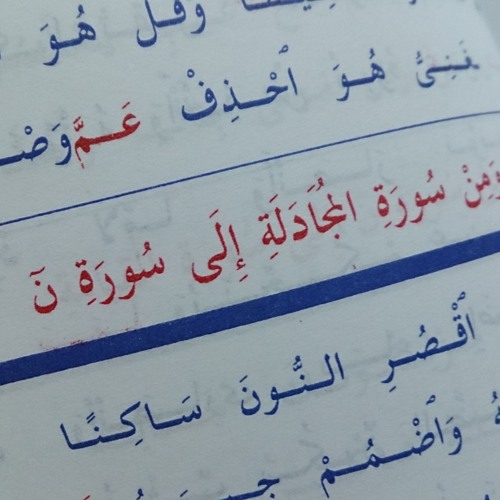 وَقُلْ هُوَ
غَنِىُّ هُوَ ٱحْذِفْ عَمَّ وَصْـ
وَمِنْ سُورَةِ المُجَادَلَةِ إِلَى سُورَةِ نَ
ٱقْصُرِ النُّونَ سَاكِنًا
وَٱضْمُمْ